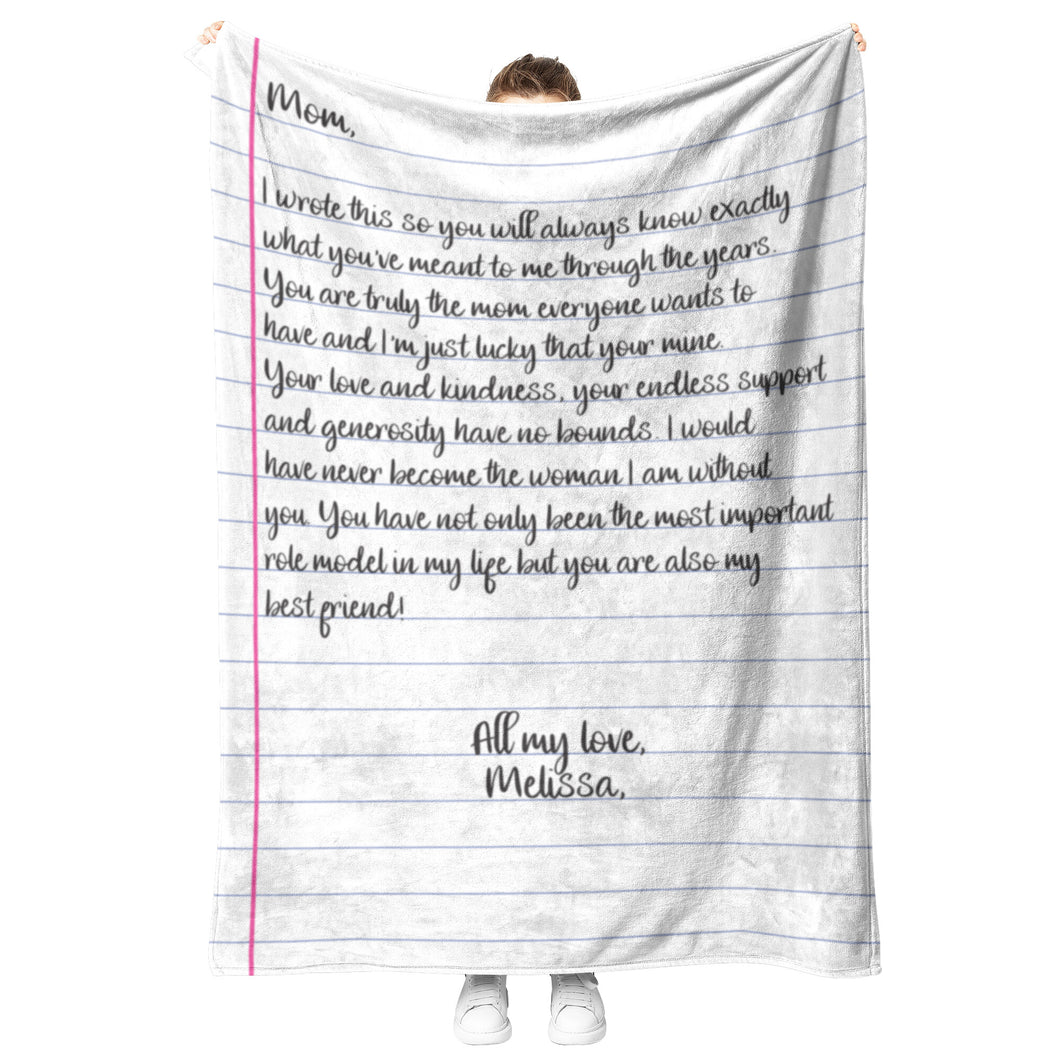 Mom,
I wrote this so you will always know exactly
what you've meant to me through the years.
You are truly the mom everyone wants to
have and I'm just lucky that your mine.
Your love and kindness, your endless support
and generosity have no bounds. I would
have never become the woman I am without
you. You have not only been the most important
role model in my life but you are also my
best friend!
All my love,
Melissa,